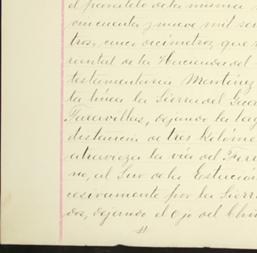 el paralelo de la misma
cincuenta y nueve mil se
tros, cinco decímetros, que
oriental de la Hacienda del
testamentaria Martínez
ta línea la Sierra del
Taravillas, dejando la la
distancia de tres Kilóm
atravieza la vía del Ferr
no, al Sur de la Estación
cesivamente por la Sierr
dos, dejando el Ojo del